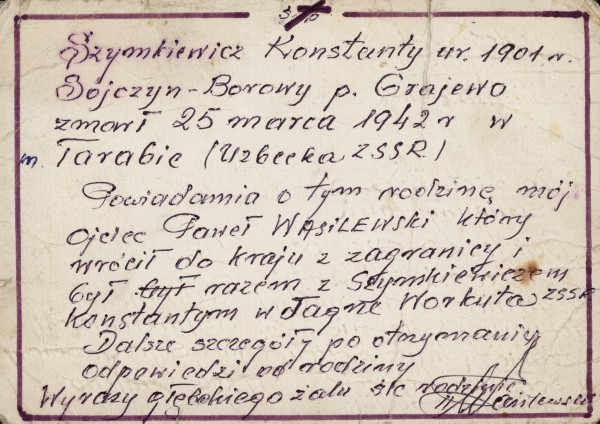 Szymkiewicz Konstanty ur. 1901 r.
Sojczyn-Borowy p. Grajewo
zmarł 25 marca 1942 r w
m. Tarabie (Uzbecka ZSSR.)
Powiadamia o tym rodzinę mój
ojciec Paweł WASILEWSKI który
wrócił do kraju z zagranicy i
był był razem z Szymkiewiczem
Konstantym w łagne Workuta ZSSR
Dalsze szczegóły po otrzymaniu
odpowiedzi od rodziny
Wyrazy głębokiego żalu rodzinie
Wasilewski